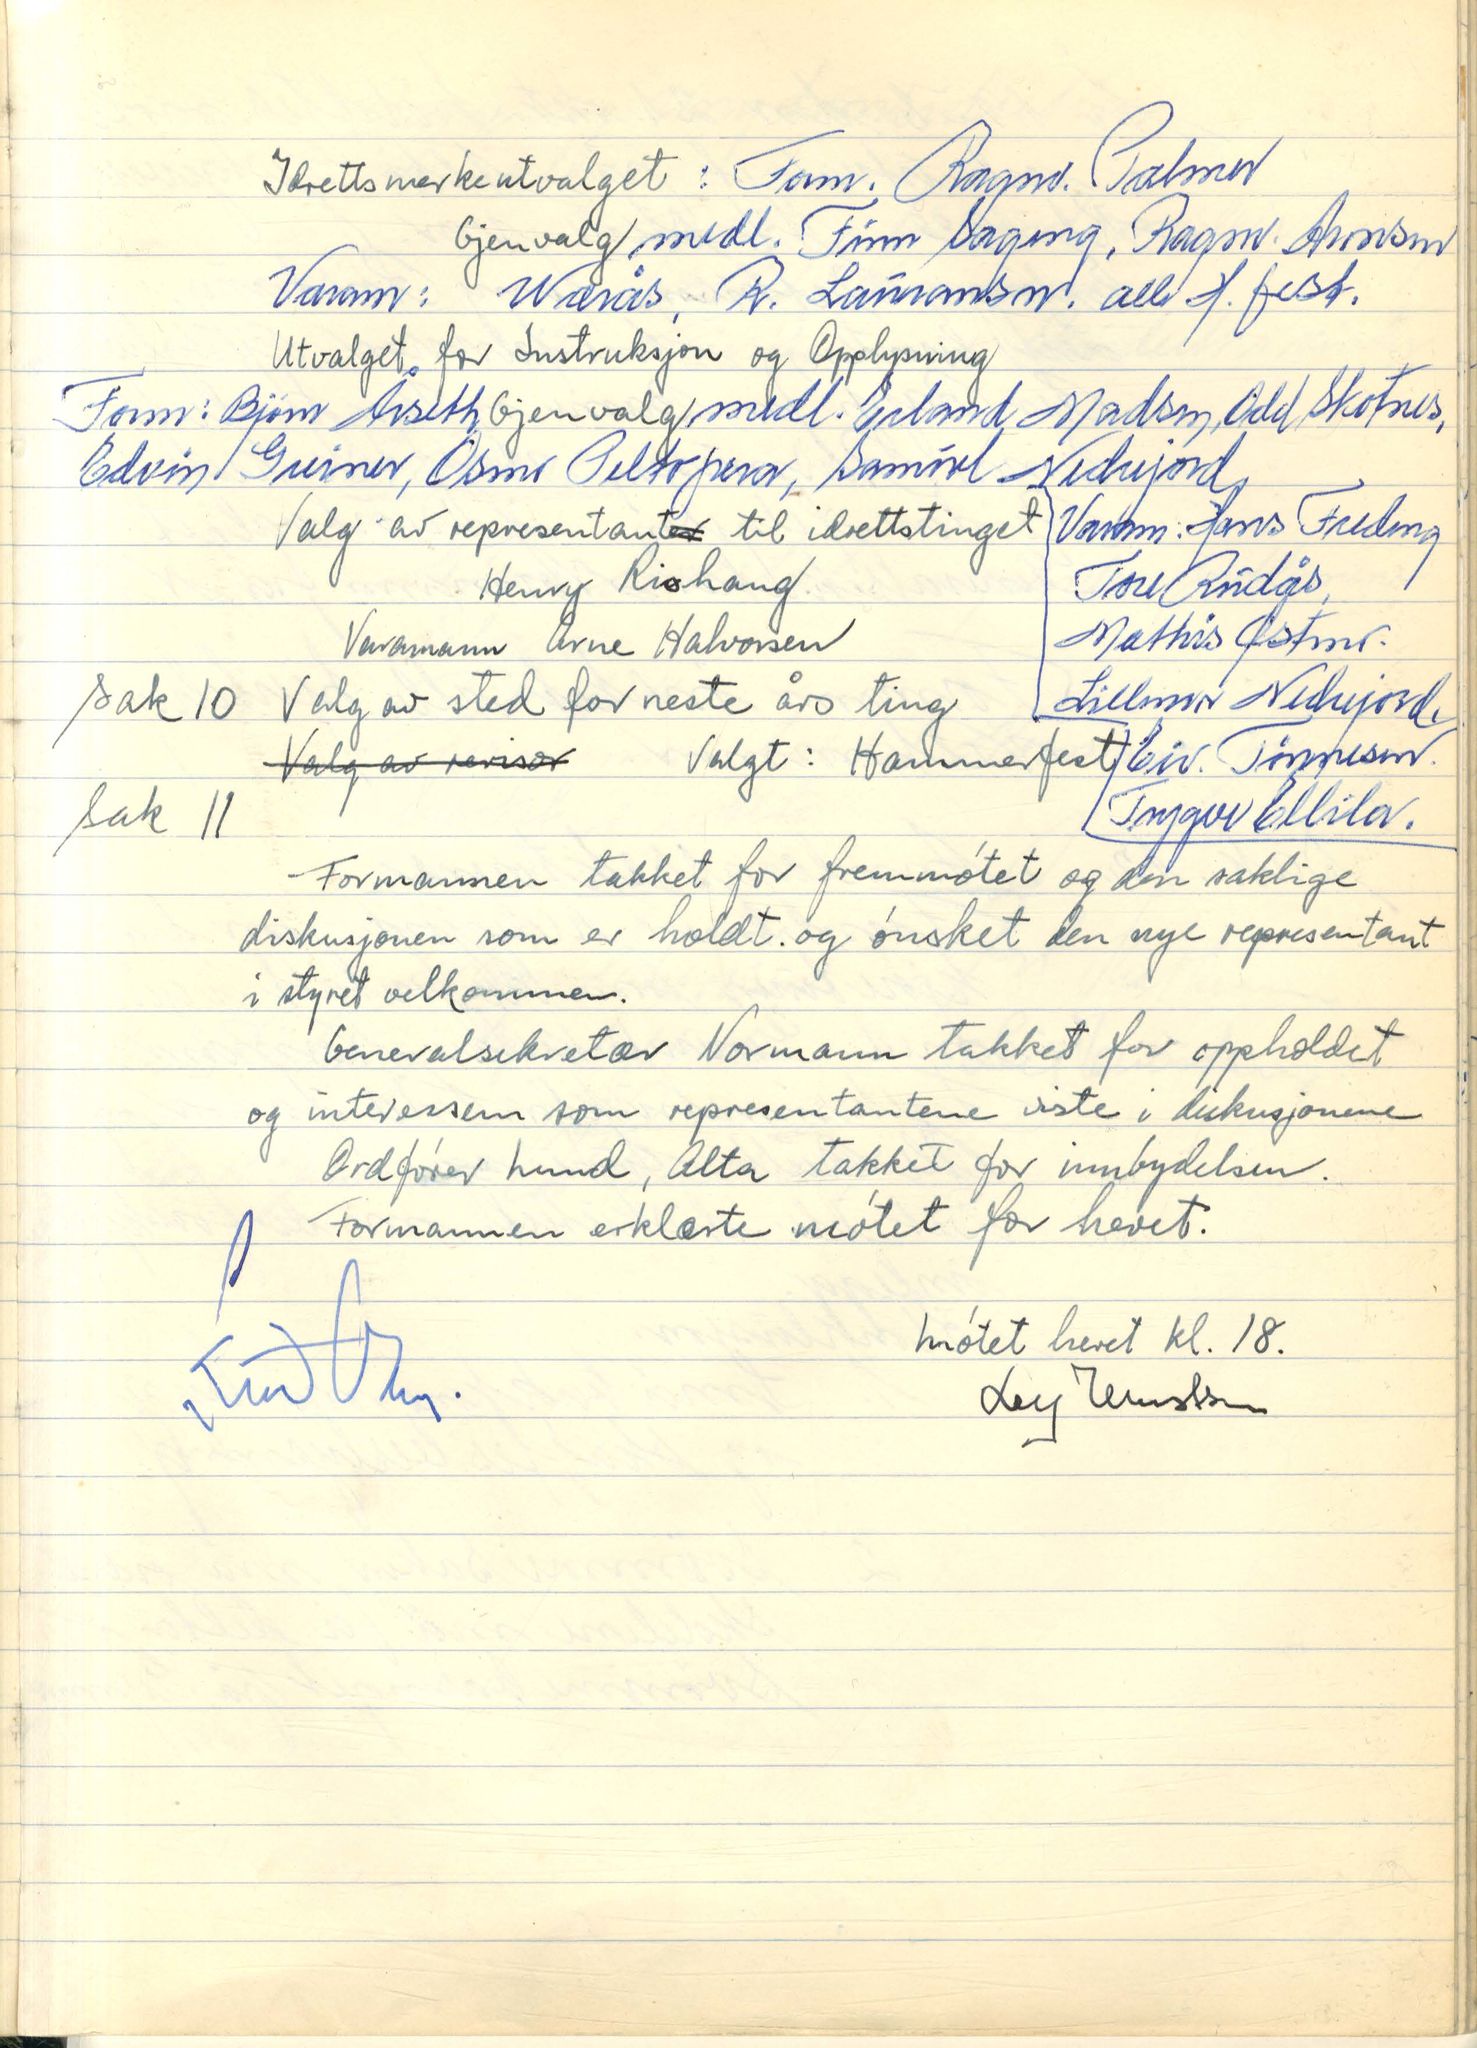 Idrettsmerkeutvalget : Form. Ragnv. Palmer
Gjenvalg medl. Finn Sageng, Ragnv. Aronsen
Varam: Warås, R. Lauransen. alle H.fest.
Utvalget for Instruksjon og Opplysning
Form: Bjørn Årseth, Gjenvalg medl. Erland Madsen, Odd Skotnes,
Edvin Greiner, Osmo Peltopera, Samúel Nedrejord,
Valg av representanter til idrettstinget
Henry Rishaug
Varamann Arne Halvorsen
Varam: Hans Fredeng
Tore Rudås,
Mathis Østmo.
Lillemor Nedrejord,
Eiv. Tönnesen.
Trygve Ellila.
Sak 10 Valg av sted for neste års ting
Valg av revisor Valgt: Hammerfest
Sak 11
Formannen takket for fremmøtet og den saklige
diskusjonen som er holdt. og ønsket den nye representant
i styret velkommen.
Generalsekretær Normann takket for oppholdet
og interessem som representantene viste i diskusjonene
Ordfører Lund, Alta takket for innbydelsen.
Formannen erklærte møtet for hevet.
Møtet hevet kl. 18.